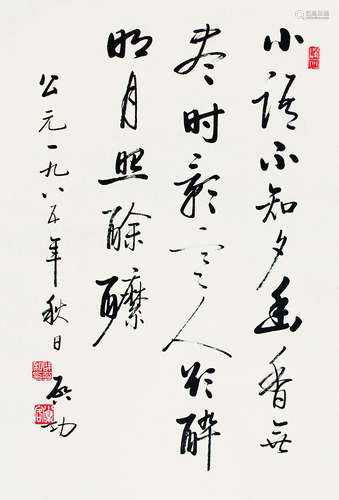 小语不知夕幽香無
尽时人欲醉
明月照酴醾
公元一九八五年秋日 启功